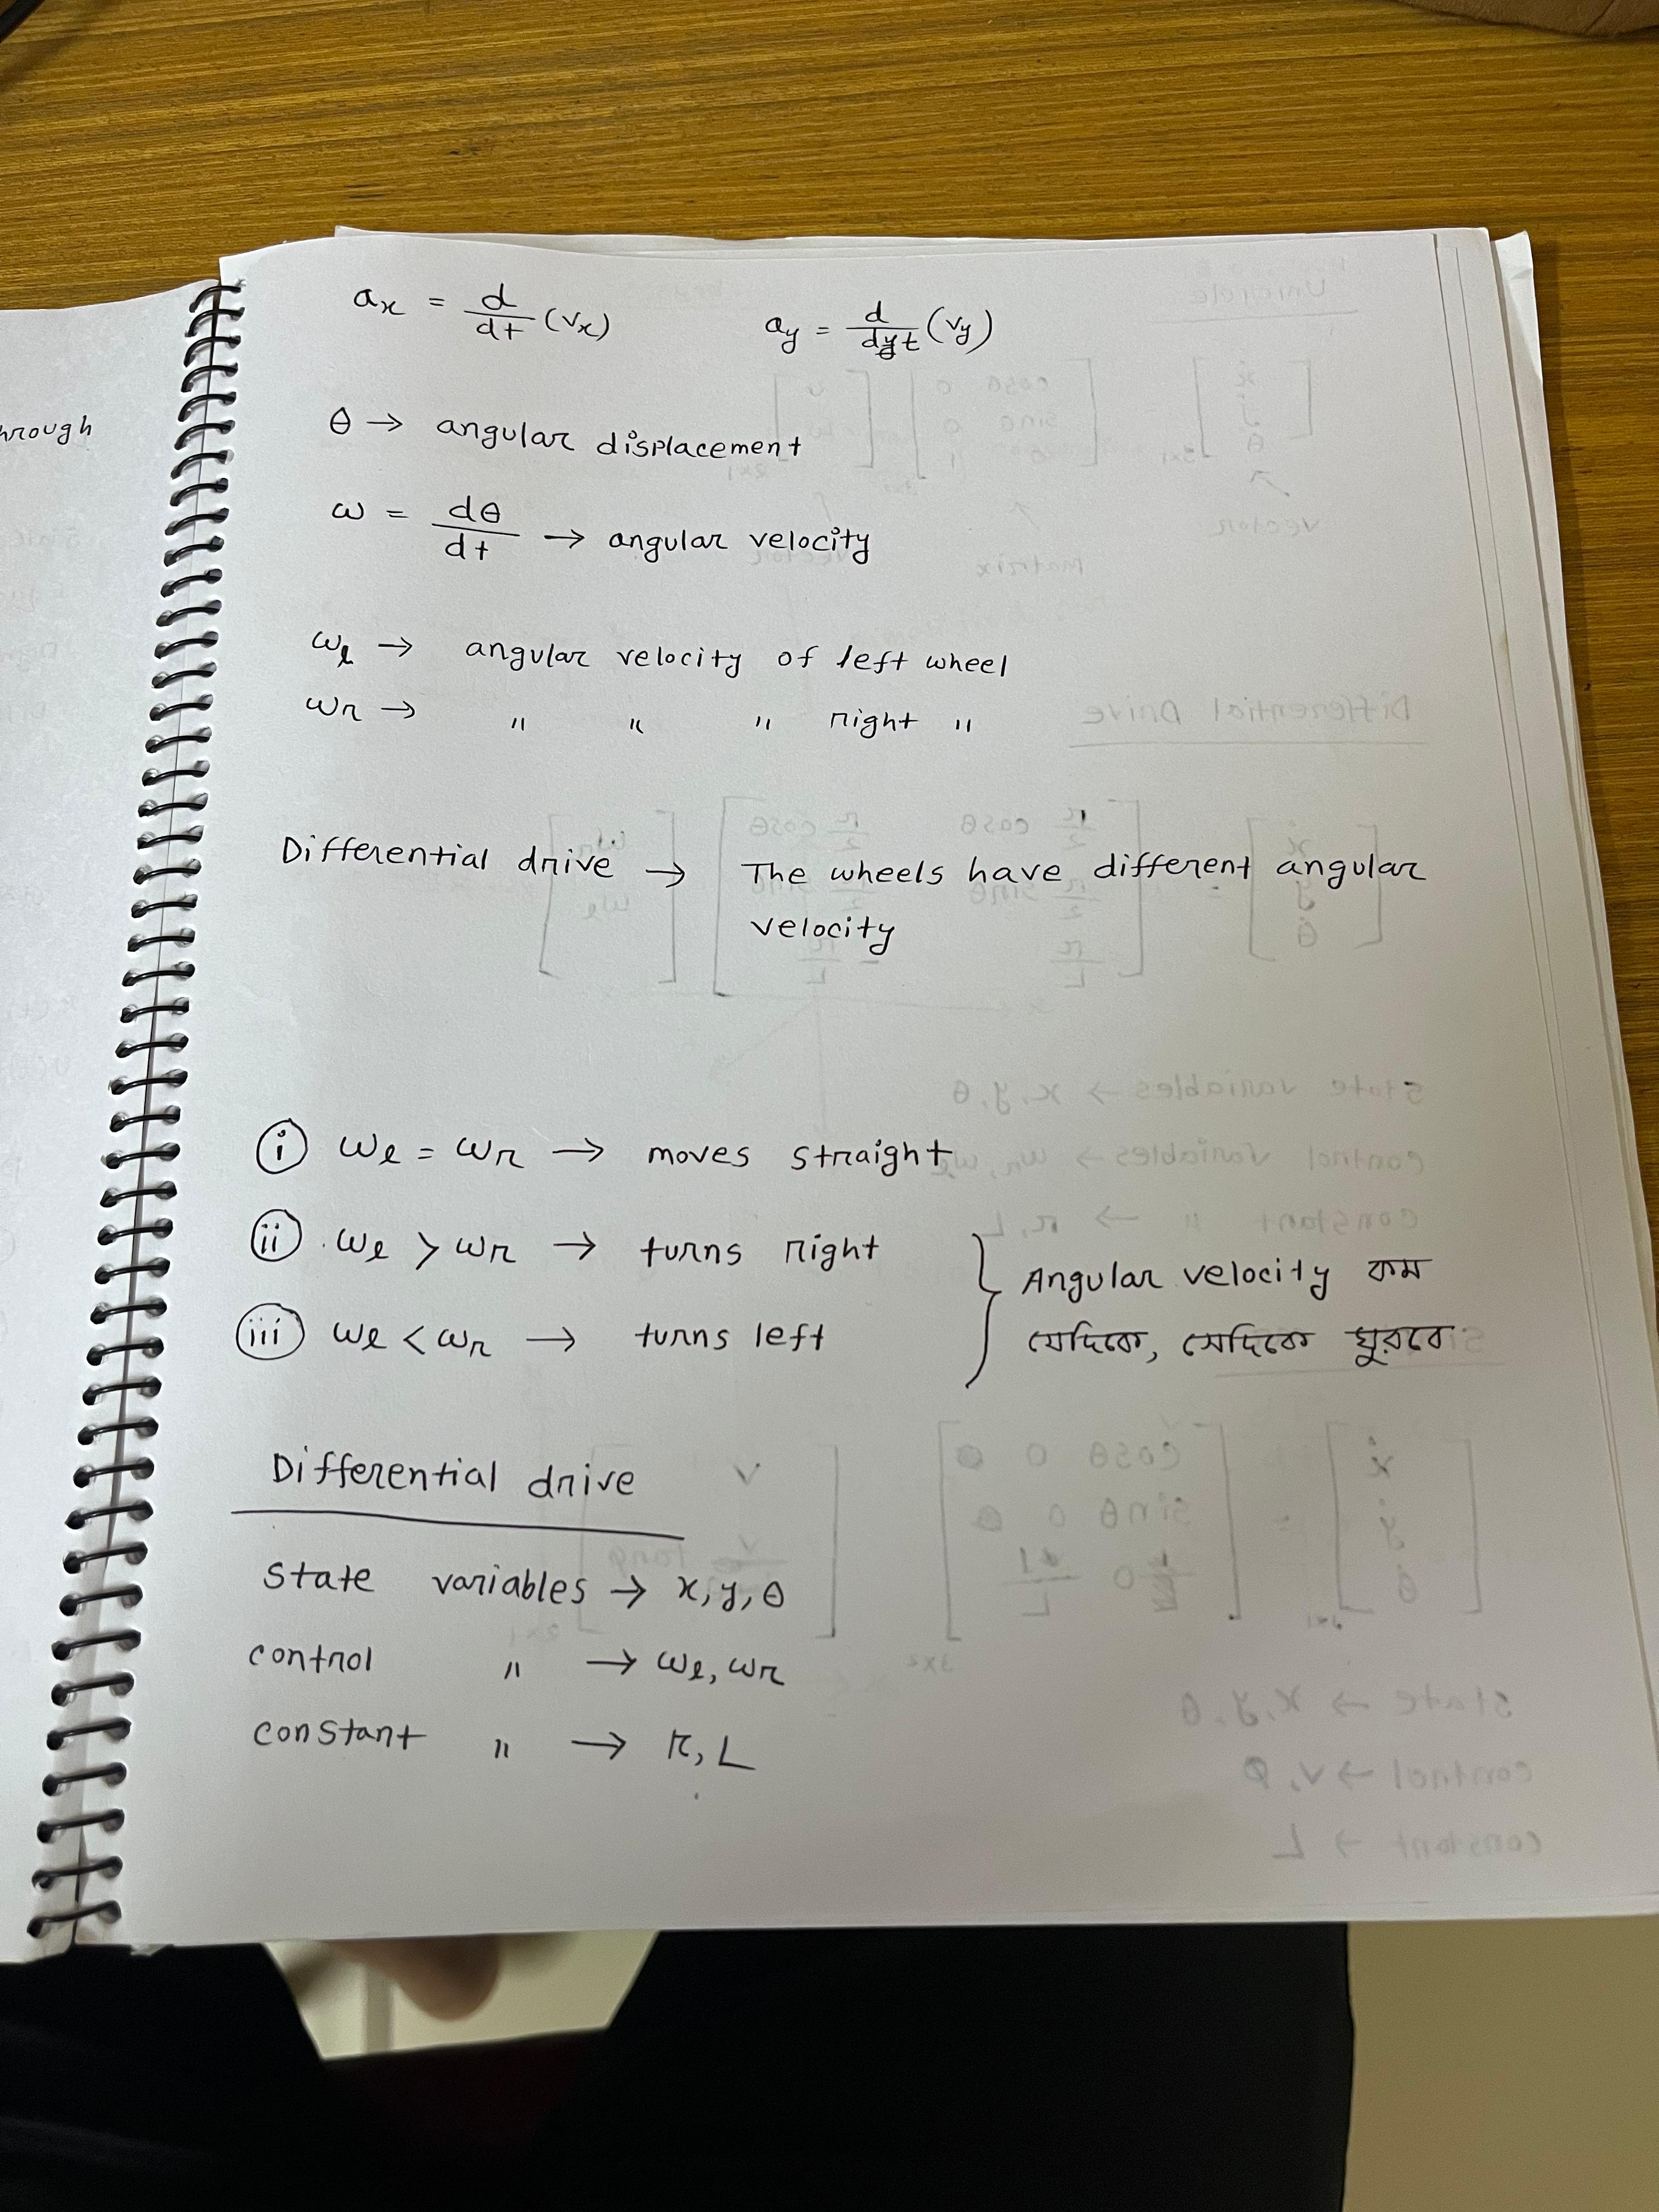 hrough
ax = d/dt (vx)    ay = d/dt (vy)
θ → angular displacement
ω = dθ/dt → angular velocity
ωl → angular velocity of left wheel
ωr → " " " right "
Differential drive → The wheels have different angular
velocity
(i) ωl = ωr → moves straight
(ii) ωl > ωr → turns right
(iii) ωl < ωr → turns left
} Angular velocity কম
যেদিকে, সেদিকে ঘুরবে
Differential drive
State variables → x, y, θ
control " → ωl, ωr
constant " → r, L